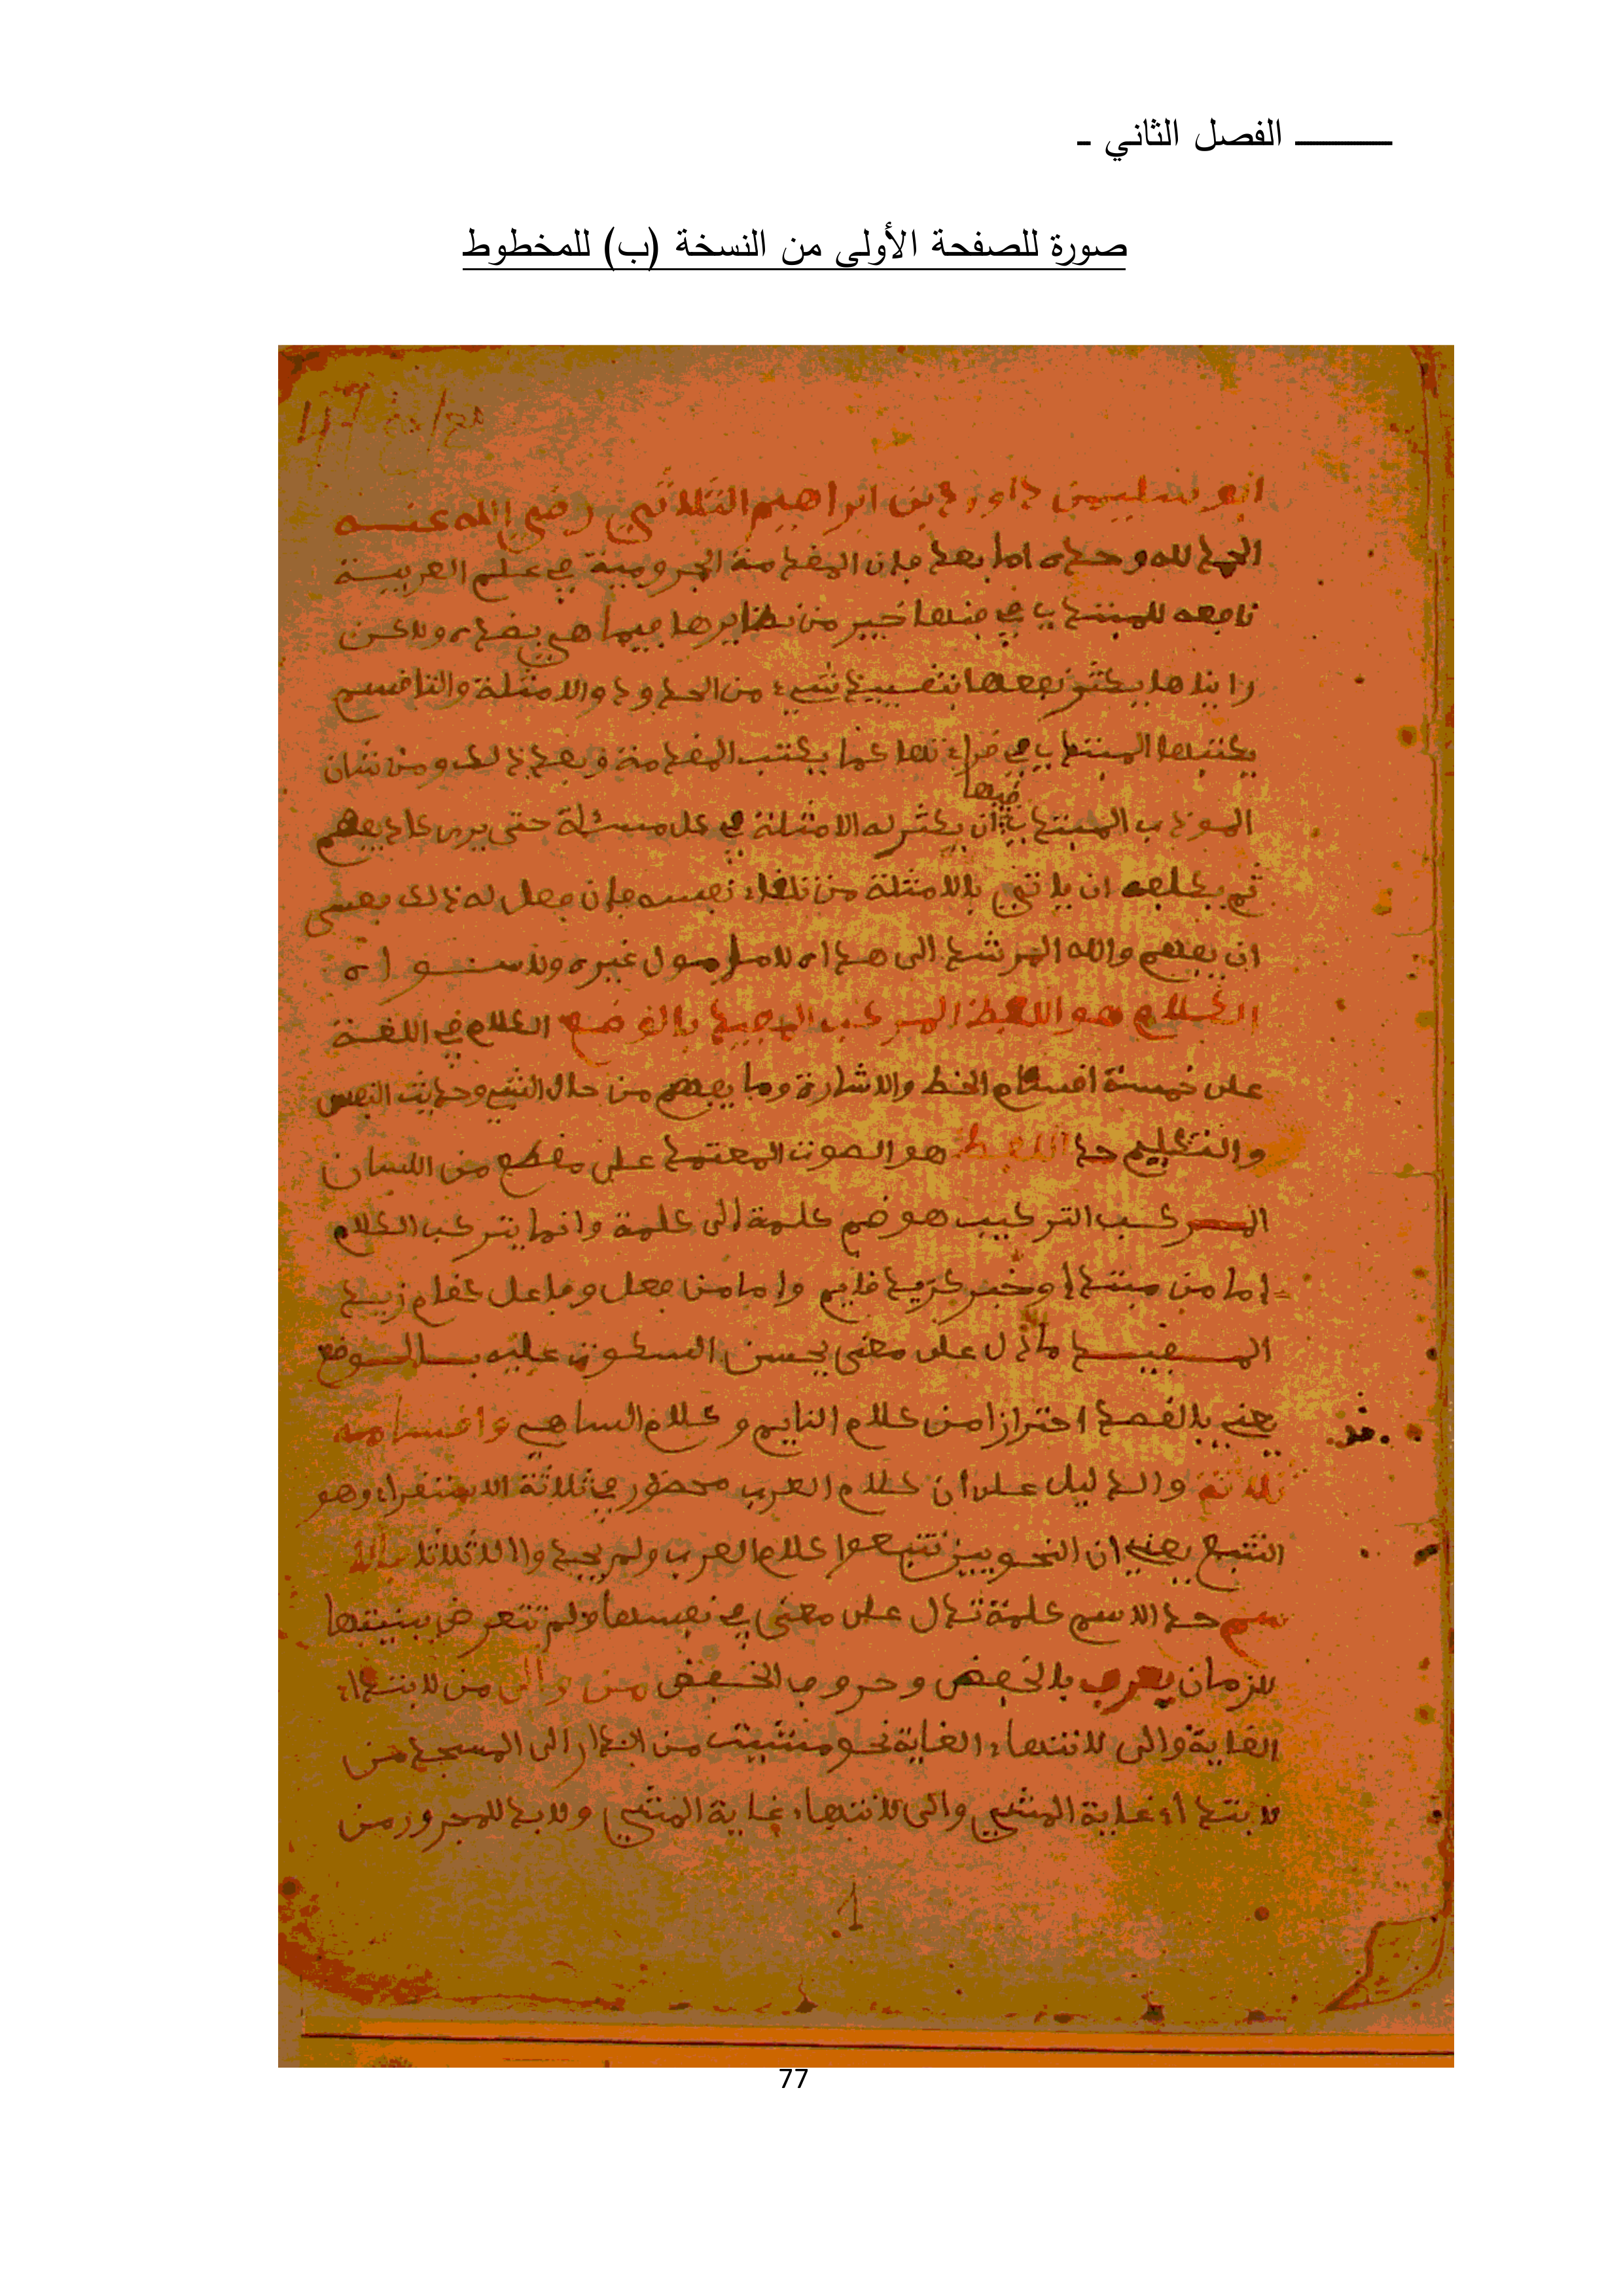 ــــــــ الفصل الثاني ـ
صورة للصفحة الأولى من النسخة (ب) للمخطوط
ابو سليمن داود بن ابراهيم التلاتي رضي الله عنه
الحمد لله وحده اما بعد فان المقدمة الجرومية في علم العربية
نافعه للمبتدي في خير من نظايرها فيما هي بصده ولاكن
راينا ها يكثر نفعها بتقييد شيء من الحدود والامثلة والتقاسيم
يكتبها المبتدي في قراءتها كما يكتب المقدمة وبعد ذلك ومن شان
فيها
المودب المبتدي ان يكثر له الامثلة في كل مسئلة حتى يرى كاد يفهم
ثم يكلفه ان ياتي بالامثلة من تلقاء نفسه فان فعل له ذلك فعسى
ان يفهم والله المرشد الى هداه لا مامول غيره ولا سواه
الكلام هو اللفظ المركب المفيد بالوضع الكلام في اللغة
على خمسة اقسام الخط والاشارة وما يفهم من حال الشيء وحديث النفس
والتكليم حد اللفظ هو الصوت المعتمد على مقطع من اللسان
المركب التركيب هو ضم كلمة الى كلمة وانما يتركب الكلام
اما من مبتدا وخبر كزيد قايم واما من فعل وفاعل كقام زيد
المفيد ما دل على معنى يحسن السكوت عليه بالوضع
يعني بالقصد احترازا من كلام النايم وكلام الساهي واقسامه
ثلاثة والدليل على ان كلام العرب محصور في ثلاثة الاستقراء وهو
التتبع يعني ان النحويين تتبعوا كلام العرب ولم يجدوا الا ثلاثا فالا
سم حد الاسم كلمة تدل على معنى في نفسها ولم تتعرض ببنيتها
للزمان يعرف بالخفض وحروف الخفض من والى من لابتداء
الغاية والى لانتهاء الغاية نحو مشيت من الدار الى المسجد من
لابتداء غاية المشي والى لانتهاء غاية المشي ولابد للمجرور من
1
77